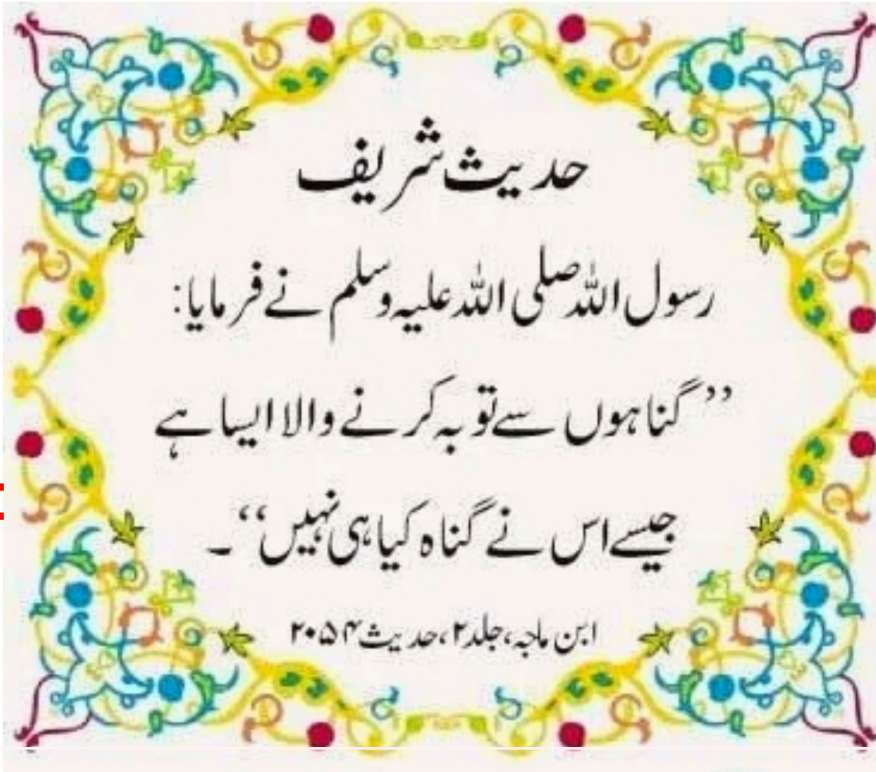 حدیث شریف
رسول اللہ صلی اللہ علیہ وسلم نے فرمایا:
”گناہوں سے توبہ کرنے والا ایسا ہے
جیسے اس نے گناہ کیا ہی نہیں“۔
ابن ماجہ، جلد ۲، حدیث ۲۰۵۴